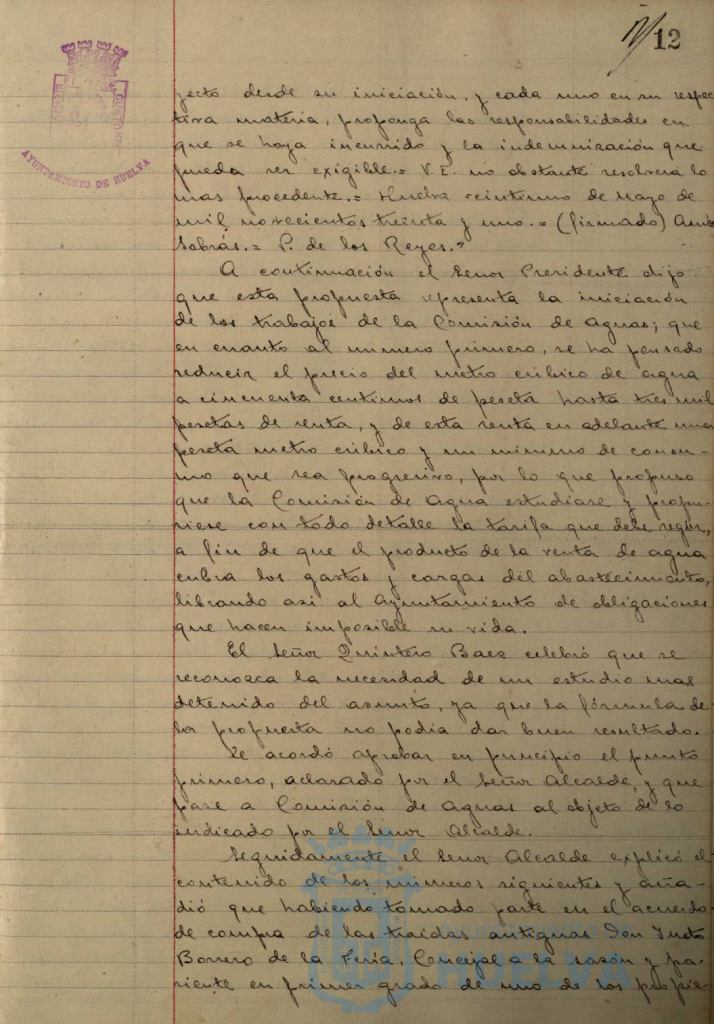 12
AYUNTAMIENTO DE HUELVA
yecto desde su iniciación, y cada uno en su respec-
tiva materia, proponga las responsabilidades en
que se haya incurrido y la indemnización que
pueda ser exigible.= V.E. no obstante resolverá lo
mas procedente.= Huelva veintiuno de Mayo de
mil novecientos treinta y uno.= (firmado) Amós
Sabrás.= P. de los Reyes."
A continuación el Señor Presidente dijo
que esta propuesta representa la iniciación
de los trabajos de la Comisión de Aguas; que
en cuanto al número primero, se ha pensado
reducir el precio del metro cúbico de agua
a cincuenta centimos de peseta hasta tres mil
pesetas de renta, y de esta renta en adelante una
peseta metro cúbico y un minimo de consu-
mo que sea progresivo, por lo que propuso
que la Comisión de Agua estudiase y propu-
siese con todo detalle la tarifa que debe regir,
a fin de que el producto de la venta de agua
cubra los gastos y cargas del abastecimiento,
librando asi al Ayuntamiento de obligaciones
que hacen imposible su vida.
El Señor Quintero Baez celebró que se
reconozca la necesidad de un estudio mas
detenido del asunto, ya que la fórmula de
la propuesta no podia dar buen resultado.
Se acordó aprobar en principio el punto
primero, aclarado por el Señor Alcalde, y que
pase a Comisión de Aguas al objeto de lo
indicado por el Señor Alcalde.
Seguidamente el Señor Alcalde explicó el
contenido de los números siguientes y aña-
dió que habiendo tomado parte en el acuerdo
de compra de las traidas antiguas Don Justo
Borrero de la Feria, Concejal a la sazón y pa-
riente en primer grado de uno de los propie-
HUELVA